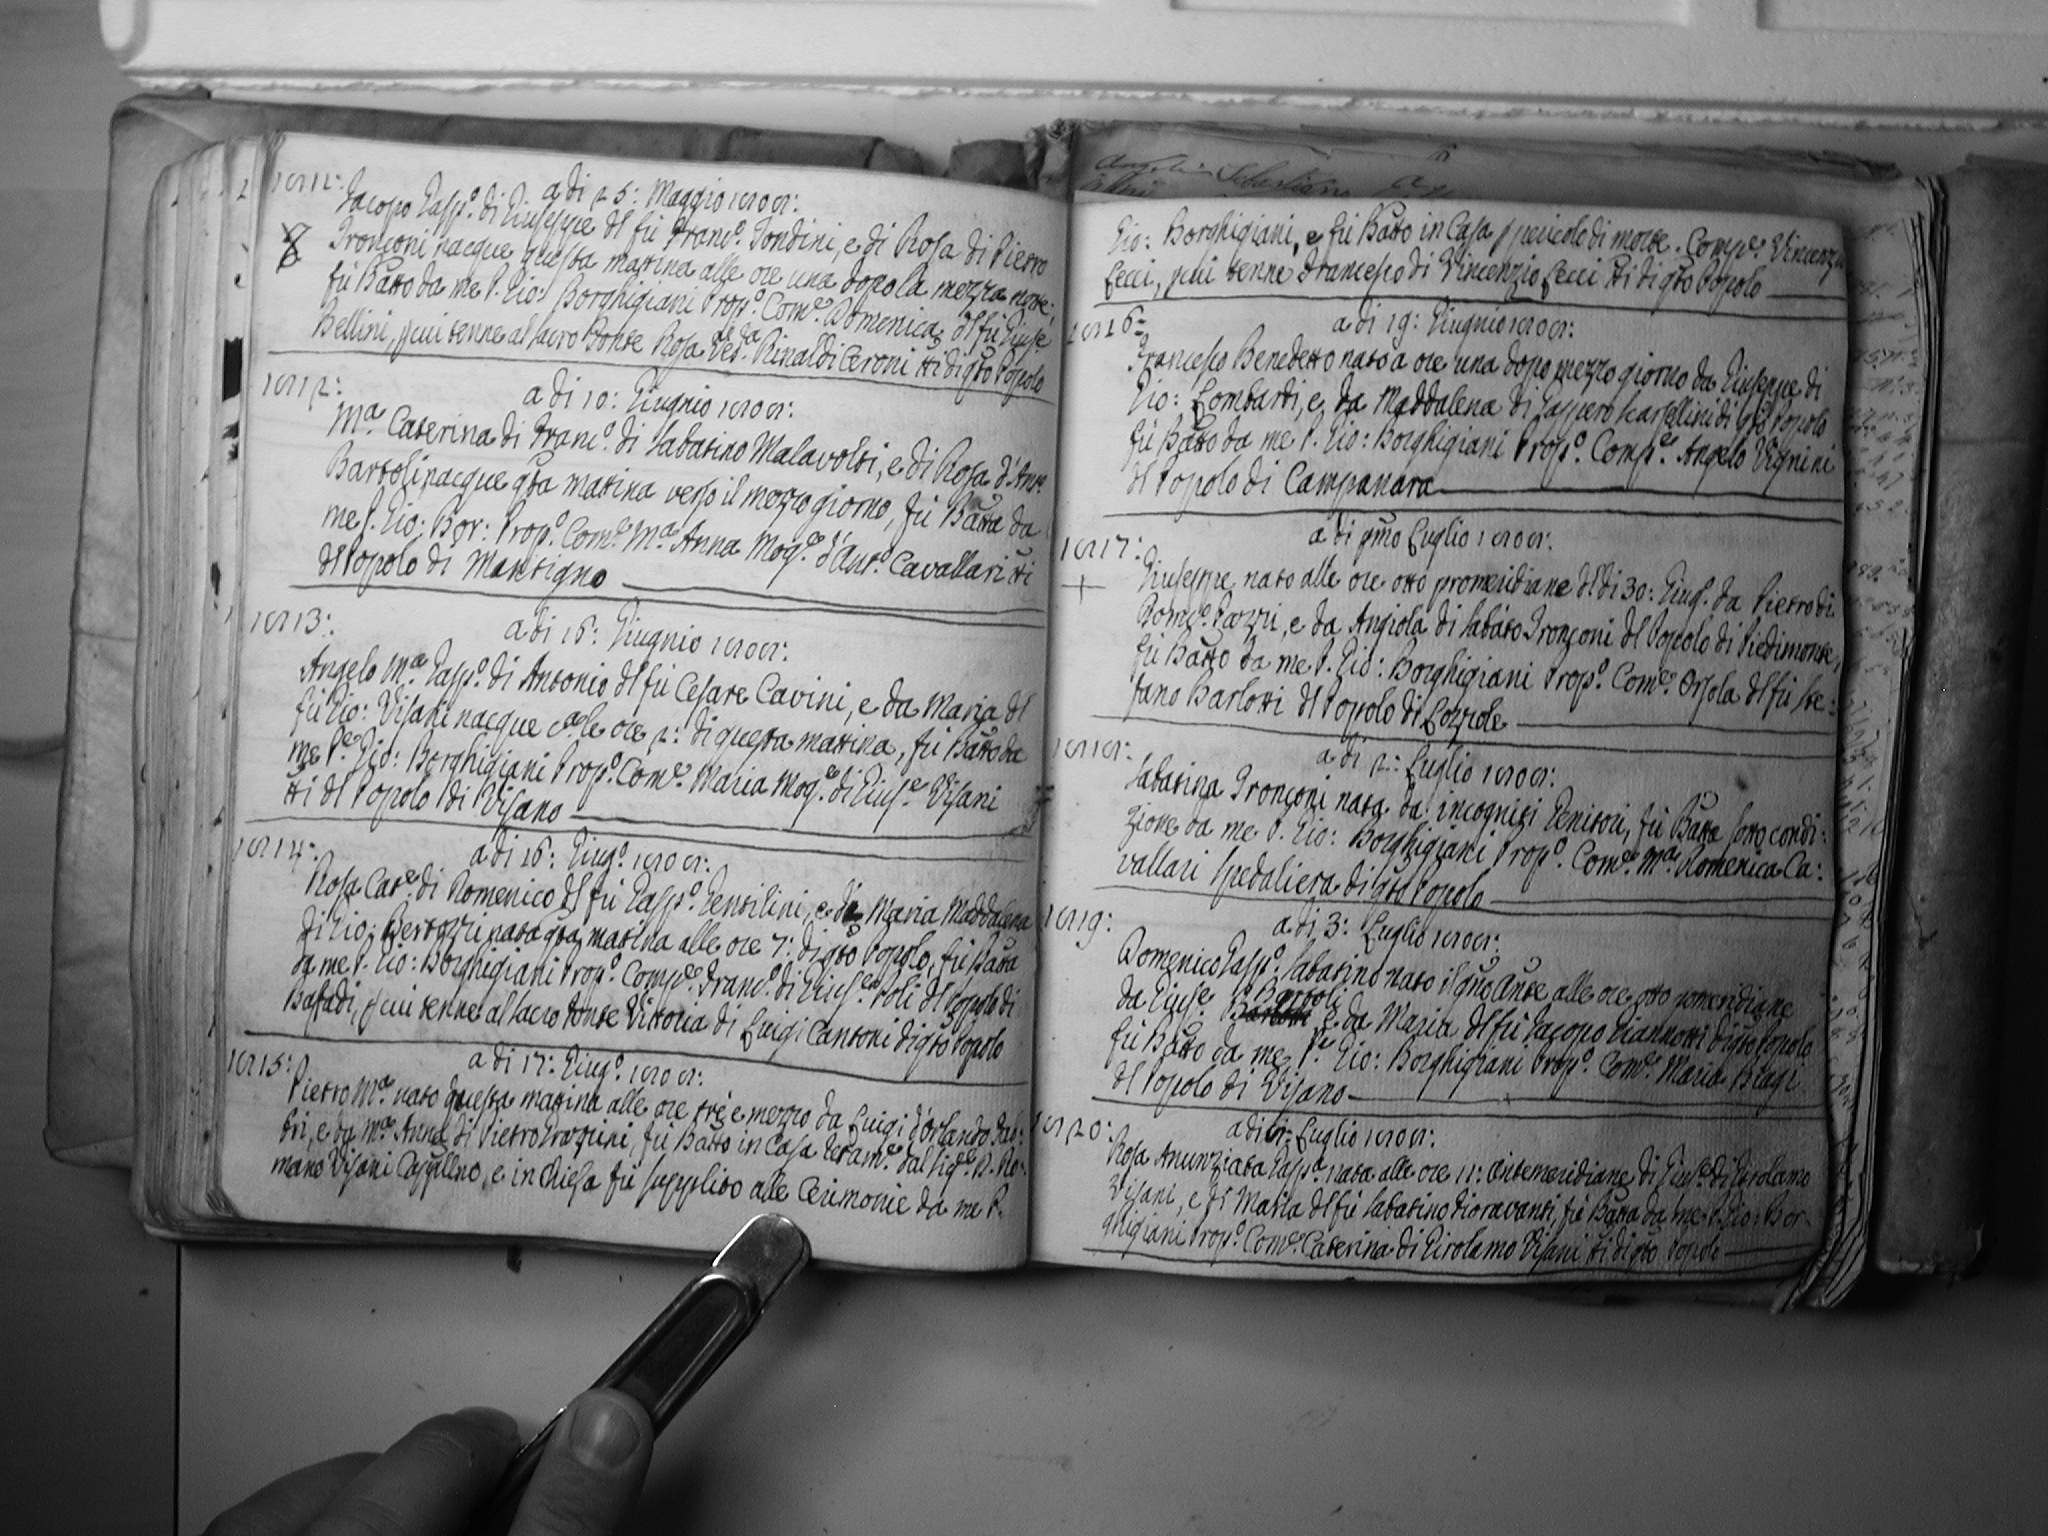 1811: a di 25: Maggio 1808:
Jacopo Gasp.o di Giuseppe del fù Franc.o Tondini, e di Rosa di Pietro
Tronconi nacque questa mattina alle ore una dopo la mezza notte,
fù Batto da me P. Gio: Borghigiani Prop.o Com.e Domenica del fù Giuse.
Bellini, p cui tenne al sacro Fonte Rosa Ved.a Rinaldi Ceroni tti di qto Popolo
1812: a di 10: Giugnio 1808:
M.a Caterina di Franc.o di Sabatino Malavolti, e di Rosa d'Ant.o
Bartoli nacque qta mattina verso il mezzo giorno, fù Batta da
me P. Gio: Bor: Prop.o Com.e M.a Anna Mog.e d'Ant.o Cavallari tti
del Popolo di Mantigno
1813: a di 16: Giugnio 1808:
Angelo M.a Gasp.o di Antonio del fù Cesare Cavini, e da Maria del
fù Gio: Visani nacque c.a le ore 2: di questa mattina, fù Batto da
me P.e Gio: Borghigiani Prop.o Com.e Maria Mog.e di Gius.e Visani
tti del Popolo di Visano
1814: a di 16: Giug.o 1808:
Rosa Cat.a di Domenico del fù Gasp.o Gentilini, e da Maria Maddalena
di Gio: Bertozzi nata qta mattina alle ore 7: di qto Popolo, fù Batta
da me P. Gio: Borghigiani Prop.o Comp.e Franc.o di Gius.e Poli del Popolo di
Bafadi, p cui tenne al sacro Fonte Vittoria di Luigi Cantoni di qto Popolo
1815: a di 17: Giug.o 1808:
Pietro M.a nato questa mattina alle ore tre e mezzo da Luigi d'Orlando Fab:
bri, e da M.a Anna di Pietro Grazzini, fù Batto in Casa dal Sig.e D. Ro:
mano Visani Cappllno, e in Chiesa fù supplito alle Cerimonie da me P.
Gio: Borghigiani, e fù Batto in Casa p pericolo di morte. Comp.e Vincenzio
Lecci, p cui tenne Francesco di Vincenzio Lecci tti di qto Popolo
1816: a di 19: Giugnio 1808:
Francesco Benedetto nato a ore una dopo mezzo giorno da Giuseppe di
Gio: Lombardi, e da Maddalena di Gaspero Scarpellini di qto Popolo
fù Batto da me P. Gio: Borghigiani Prop.o Comp.e Angelo Vignini
del Popolo di Campanara
1817: a di pmo Luglio 1808:
Giuseppe nato alle ore otto promeridiane del di 30: Giug.o da Pietro di
Dom.co Pazzi, e da Angiola di Sabato Tronconi del Popolo di Piedimonte,
fù Batto da me P. Gio: Borghigiani Prop.o Com.e Orsola del fù Ste:
fano Barlotti del Popolo di Lozzole
1818: a di 2: Luglio 1808:
Sabatina Tronconi nata da incogniti Genitori, fù Batta sotto condi:
zione da me P. Gio: Borghigiani Prop.o Com.e M.a Domenica Ca:
vallari Spedaliera di qto Popolo
1819: a di 3: Luglio 1808:
Domenico Gasp.o Sabatino nato il gno Ante alle ore otto pomeridiane
da Gius.e Bartoli e da Maria del fù Jacopo Giannotti di qto Popolo
fù Batto da me P.e Gio: Borghigiani Prop.o Com.e Maria Biagi
del Popolo di Visano
1820: a di 8: Luglio 1808:
Rosa Anunziata Gasp.a nata alle ore 11: antemeridiane di Gius.e di Girolamo
Visani, e di Maria del fù Sabatino Fioravanti, fù Batta da me P. Gio: Bor:
ghigiani Prop.o Com.e Caterina di Girolamo Visani tti di qto Popolo